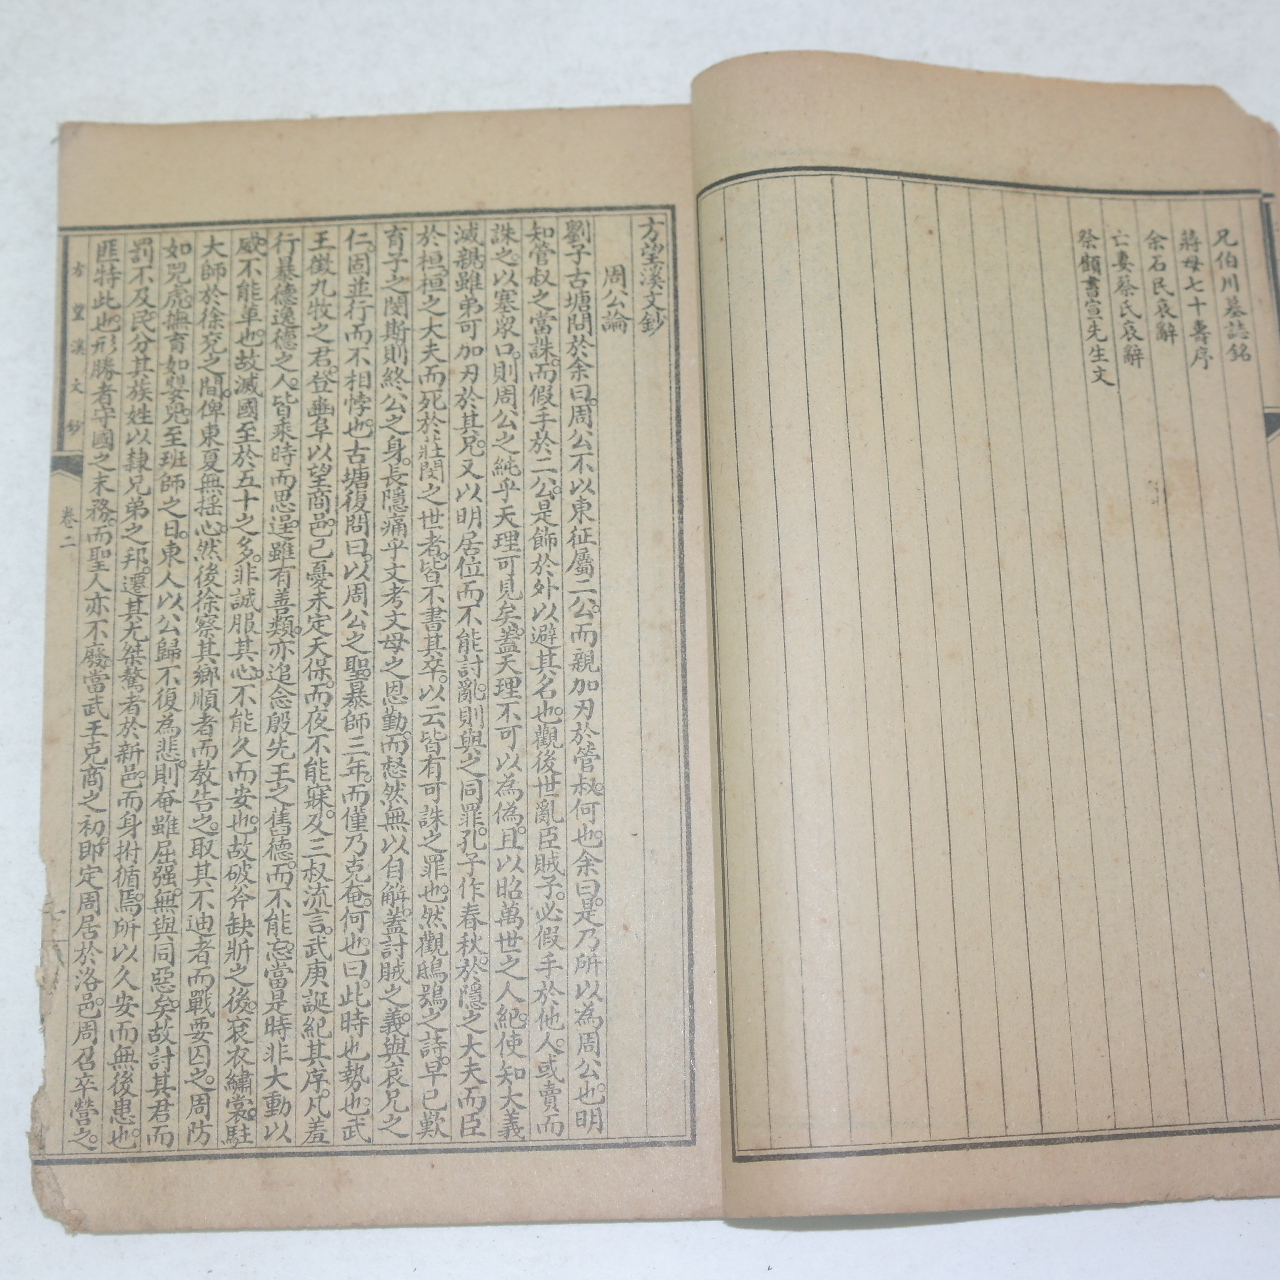 兄伯川墓誌銘
蔣母七十壽序
余石民哀辭
亡妻蔡氏哀辭
祭顧書宣先生文
方望溪文鈔
周公論
劉子古塘問於余曰。周公不以東征屬二公。而親加刃於管叔。何也。余曰。是乃所以為周公也。明
知管叔之當誅。而假手於二公。是飾於外以避其名也。觀後世亂臣賊子。必假手於他人。或賣而
誅之以塞眾口。則周公之純乎天理可見矣。蓋天理不可以為偽。且以昭萬世之人紀。使知大義
滅親。雖弟可加刃於其兄。又以明居位而不能討亂。則與之同罪。孔子作春秋。於隱之大夫而臣
於桓。桓之大夫而死於莊閔之世者。皆不書其卒。以云皆有可誅之罪也。然觀鴟鴞之詩。早已歎
育子之閔斯。則終公之身。長隱痛乎文考文母之恩勤。而怒然無以自解。蓋討賊之義。與哀兄之
仁。固並行而不相悖也。古塘復問曰。以周公之聖。暴師三年。而僅乃克奄。何也。曰。此時也勢也。武
王徵九牧之君。登豳阜以望商邑。已憂未定天保。而夜不能寐。及三叔流言。武庚誕紀其序。凡羞
行暴德逸德之人。皆乘時而思逞。雖有善類。亦追念殷先王之舊德。而不能忘。當是時非大動以
威。不能革也。故滅國至於五十之多。非誠服其心。不能久而安也。故破斧缺斨之後。袞衣繡裳。駐
大師於徐兗之間。俾東夏無搖心。然後徐察其鄉順者而教告之。取其不迪者而戰要囚之。周防
如兕虎。撫育如嬰兒。至班師之日。東人以公歸不復為悲。則奄雖屈强。無與同惡矣。故討其君而
罰不及民。分其族姓以隸兄弟之邦。遷其尤桀驁者於新邑。而身拊循焉。所以久安而無後患也。
匪特此也。形勝者守國之末務。而聖人亦不廢。當武王克商之初。即定周居於洛邑。周召卒營之。
方望溪文鈔
卷二